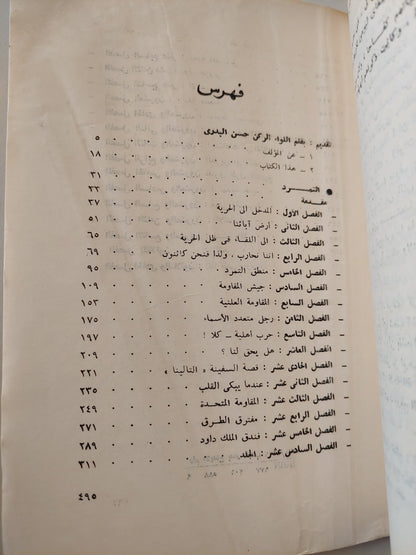 فهرس
تقديم : بقلم اللواء الركن حسن البدرى . . . ٥
١ – عن المؤلف . . . ١٨
٢ – هذا الكتاب . . . ٣١
● التمرد
مقدمة . . . ٣٣
– الفصل الاول : المدخل الى الحرية . . . ٣٧
– الفصل الثانى : أرض آبائنا . . . ٥١
– الفصل الثالث : الى اللقاء فى ظل الحرية . . . ٦٥
– الفصل الرابع : اننا نحارب ، ولذا فنحن كائنون . . . ٦٩
– الفصل الخامس : منطق التمرد . . . ٩٥
– الفصل السادس : جيش المقاومة . . . ١٠٩
– الفصل السابع : المقاومة العلنية . . . ١٥٣
– الفصل الثامن : رجل متعدد الأسماء . . . ١٧٥
– الفصل التاسع : حرب أهلية – كلا ! . . . ١٩٧
– الفصل العاشر : هل يحق لنا ؟ . . . ٢٠٩
– الفصل الحادى عشر : قصة السفينة « التالينا » . . . ٢٢١
– الفصل الثانى عشر : عندما يبكى القلب . . . ٢٣٥
– الفصل الثالث عشر : المقاومة المتحدة . . . ٢٤٩
– الفصل الرابع عشر : مفترق الطرق . . . ٢٧١
– الفصل الخامس عشر : فندق الملك داود . . . ٢٨٩
– الفصل السادس عشر : الجلد . . . ٣١١
٤٩٥